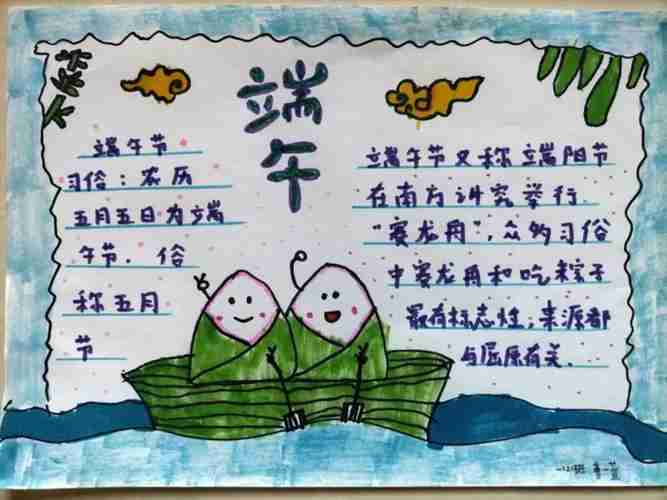 端午
端午节
习俗：农历
五月五日为端
午节．俗
称五月
节
端午节又称端阳节
在南方讲究举行
“赛龙舟”，众多习俗
中赛龙舟和吃粽子
最有标志性，来源都
与屈原有关．